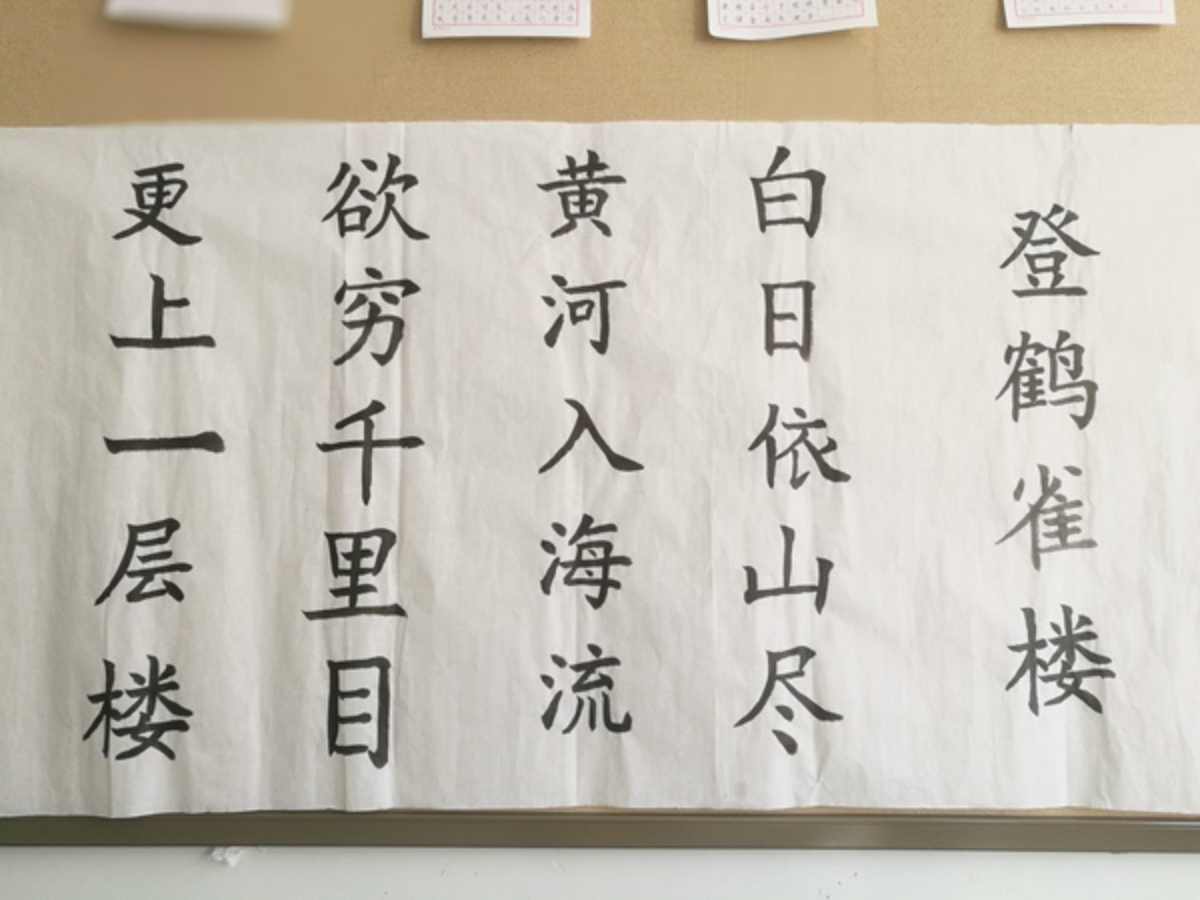 登鹤雀楼
白日依山尽
黄河入海流
欲穷千里目
更上一层楼